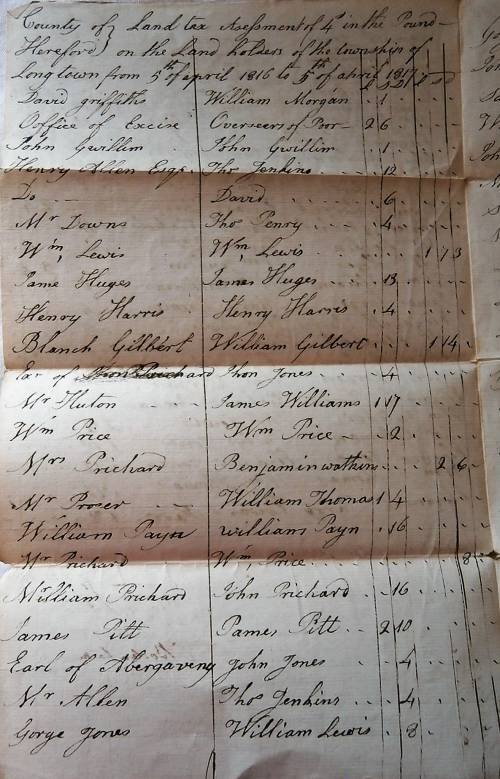 County of } Land tax Asessment of 4d in the Pound
Hereford } on the Land holders of the township of
Longtown from 5th of april 1816 to 5th of abril 1817
David griffiths William Morgan 1
Ooffice of Excise Overseers of Poor 2 6
John Gwillim John Gwillim 1
Henry Allen Esqr. Thos Jenkins 12
Do David 6
Mr Downs Thos Penry 4
Wm, Lewis Wm, Lewis 1 1 3
Jame Huges James Huges 13
Henry Harris Henry Harris 4
Blanch Gilbert William Gilbert 1 14
Ear of Jhon Jones 4
Mr Huton James Williams 1 17
Wm Price Wm Price 2
Mrs Prichard Benjamin watkins 2 6
Mr Proser William Thomas 1 4
William Payn williams Payn 16
Mr Prichard Wm, Price 8
William Prichard John Prichard 16
James Pitt James Pitt 2 10
Earl of Abergaveny John Jones 4
Mr Allen Thos Jenkins 4
Gorge Jones William Lewis 8